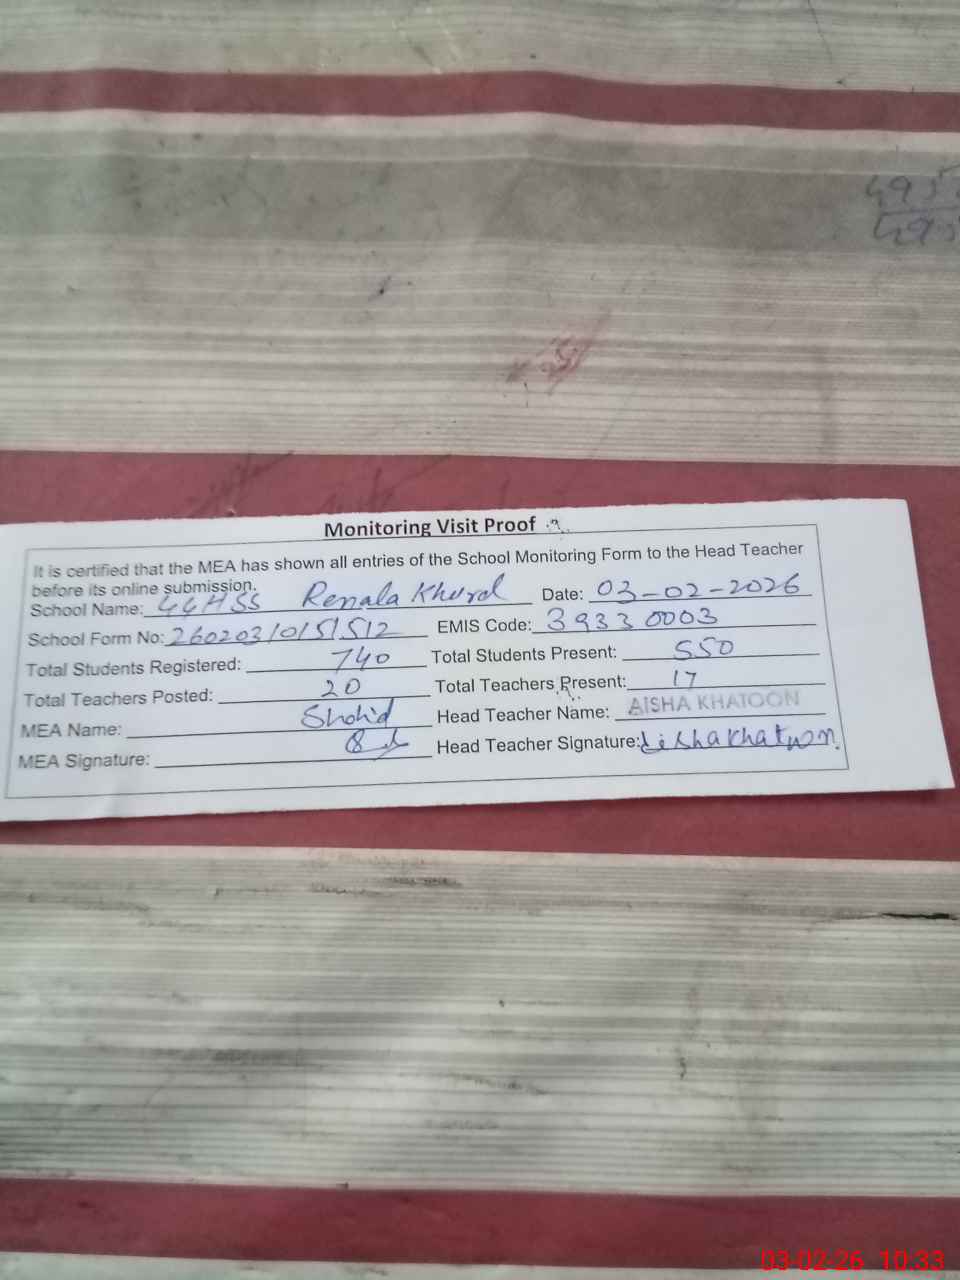 Monitoring Visit Proof
It is certified that the MEA has shown all entries of the School Monitoring Form to the Head Teacher
before its online submission.
School Name: GGHSS Renala Khurd Date: 03-02-2026
School Form No: 26020310151512 EMIS Code: 39330003
Total Students Registered: 740 Total Students Present: 550
Total Teachers Posted: 20 Total Teachers Present: 17
MEA Name: Shahid Head Teacher Name: AISHA KHATOON
MEA Signature: Head Teacher Signature: Aisha Khatoon.
03-02-26 10:33